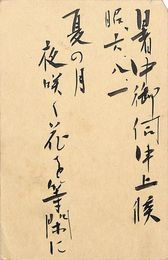 暑中御伺申上候
昭六.八.一
夏の月
夜咲く花を等閑に